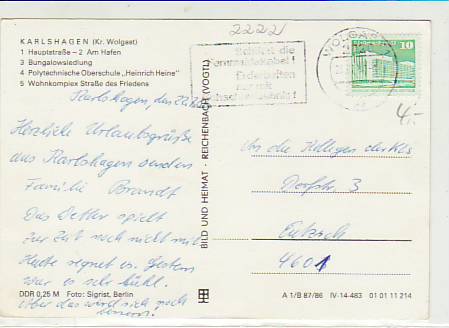 2222
KARLSHAGEN (Kr. Wolgast)
1 Hauptstraße – 2 Am Hafen
3 Bungalowsiedlung
4 Polytechnische Oberschule „Heinrich Heine"
5 Wohnkomplex Straße des Friedens
WOLGAST
Schützt die
Fernmeldekabel!
Erdarbeiten
nur mit
10
4,-
Karlshagen, den
Herzliche Urlaubsgrüße
aus Karlshagen senden
Familie Brandt
Das Wetter spielt
zur Zeit noch nicht mit.
Heute regnet es. Gestern
war es sehr kühl.
Aber das wird sich noch
bessern!
BILD UND HEIMAT · REICHENBACH (VOGTL)
An die Kollegen
Dorfstr 3
Eutzsch
4601
DDR 0,25 M Foto: Sigrist, Berlin
A 1/B 87/86 IV-14-483 01 01 11 214